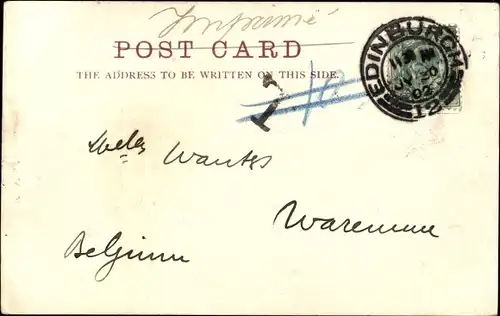 Imprimé
POST CARD
THE ADDRESS TO BE WRITTEN ON THIS SIDE.
EDINBURGH
02
12
T
Wantes
Waremme
Belgium